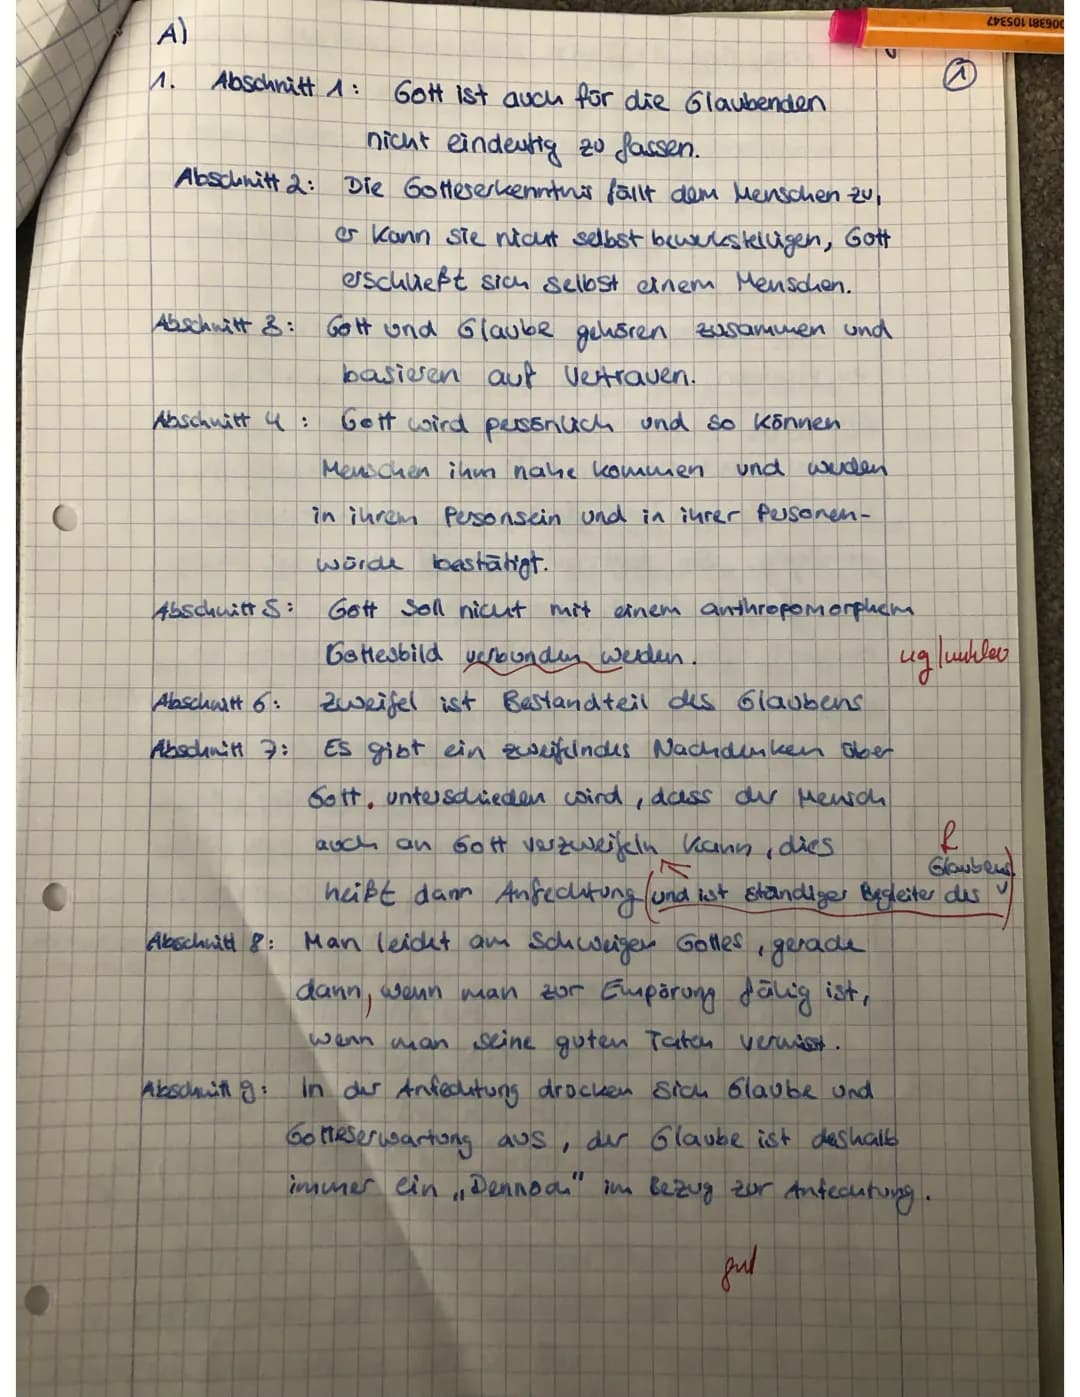 006381 105347
A)
1
1. Abschnitt 1: Gott ist auch für die Glaubenden
nicht eindeutig zu fassen.
Abschnitt 2: Die Gotteserkenntnis fällt dem Menschen zu,
er kann sie nicht selbst bewerkstelligen, Gott
erschließt sich selbst einem Menschen.
Abschnitt 3: Gott und Glaube gehören zusammen und
basieren auf Vertrauen.
Abschnitt 4: Gott wird persönlich und so können
Menschen ihm nahe kommen und werden
in ihrem Personsein und in ihrer Personen-
würde bestätigt.
Abschnitt 5: Gott soll nicht mit einem anthropomorphem
Gottesbild verbunden werden.
Abschnitt 6: Zweifel ist Bestandteil des Glaubens
Abschnitt 7: Es gibt ein zweifelndes Nachdenken über
Gott, unterschieden wird, dass der Mensch
auch an Gott verzweifeln kann, dies
R
Glaubens
heißt dann Anfechtung (und ist ständiger Begleiter des)
Abschnitt 8: Man leidet am Schweigen Gottes, gerade
dann, wenn man zur Empörung fähig ist,
wenn man seine guten Taten vermisst.
Abschnitt 9: In der Anfechtung drücken sich Glaube und
Gotteserwartung aus, der Glaube ist deshalb
immer ein „Dennoch" im Bezug zur Anfechtung.
gut